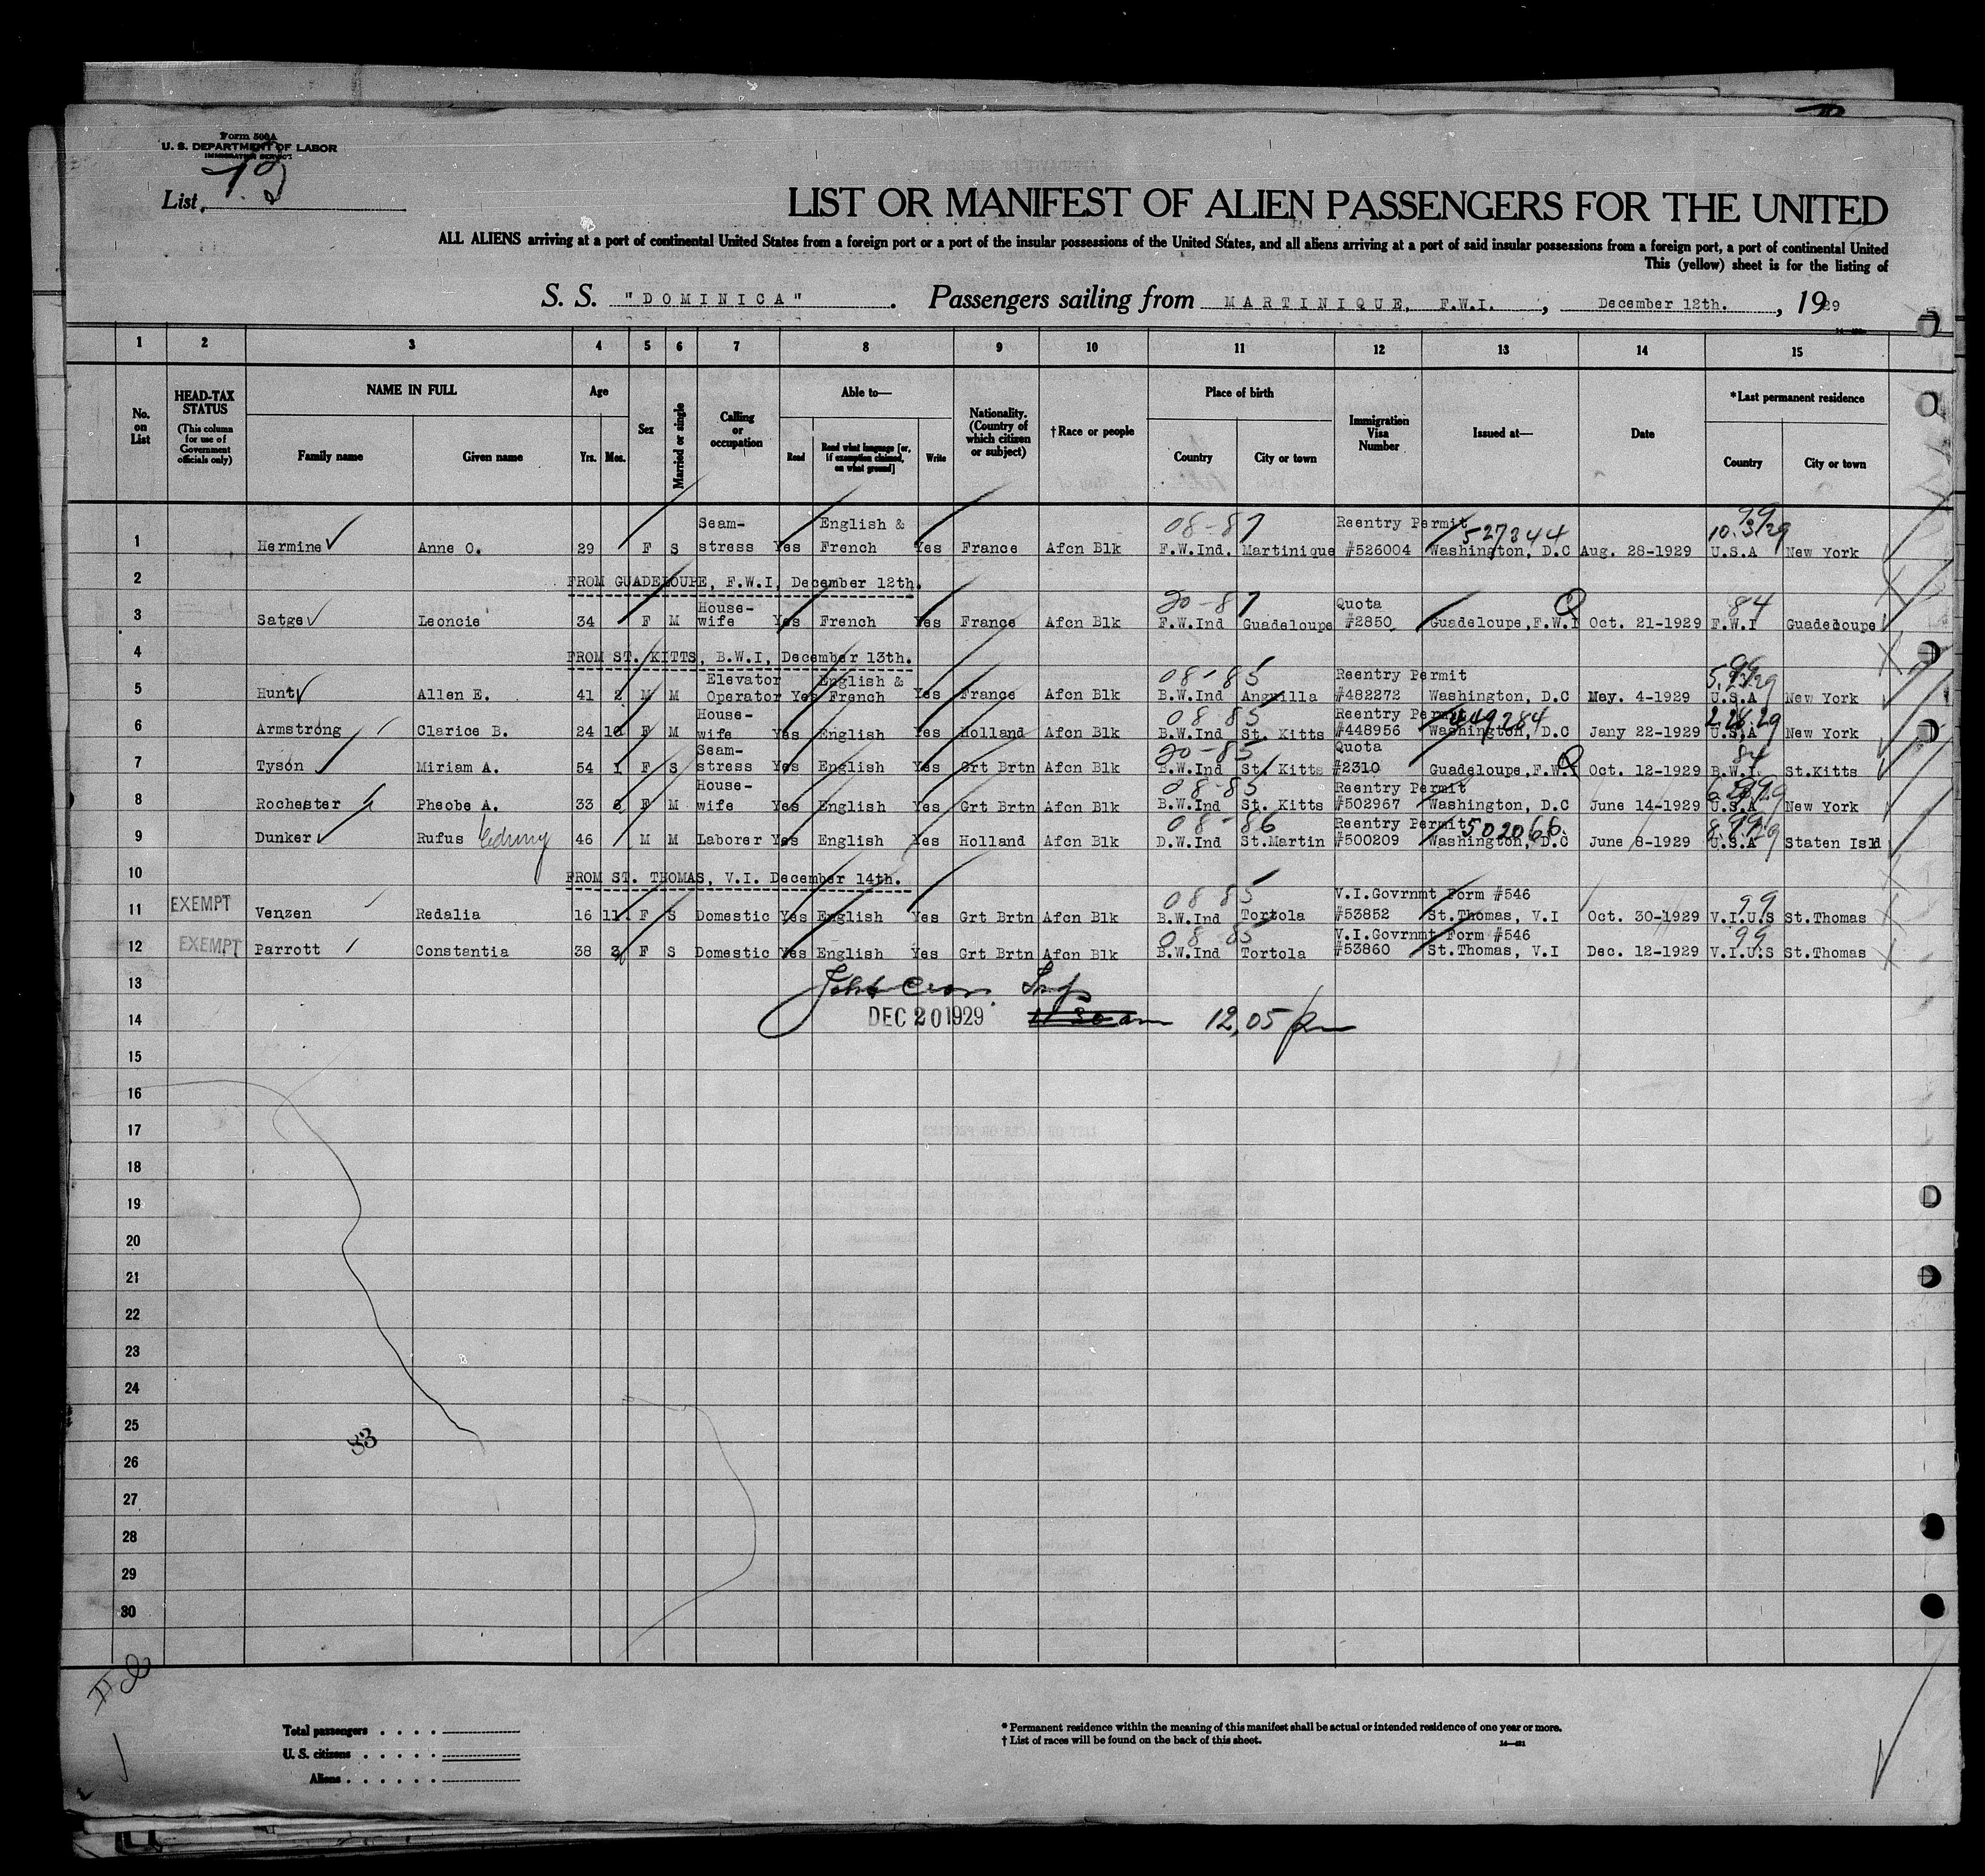 Form 500A
U. S. DEPARTMENT OF LABOR
IMMIGRATION SERVICE
List
LIST OR MANIFEST OF ALIEN PASSENGERS FOR THE UNITED
ALL ALIENS arriving at a port of continental United States from a foreign port or a port of the insular possessions of the United States, and all aliens arriving at a port of said insular possessions from a foreign port, a port of continental United
This (yellow) sheet is for the listing of
S. S. "DOMINICA" . Passengers sailing from MARTINIQUE, F.W.I. , December 12th. , 1929
1 2 3 4 5 6 7 8 9 10 11 12 13 14 15
No. on List
HEAD-TAX STATUS (This column for use of Government officials only)
NAME IN FULL Family name Given name
Age Yrs. Mos.
Sex
Married or single
Calling or occupation
Able to— Read Read what language [or, if exemption claimed, on what ground] Write
Nationality. (Country of which citizen or subject)
† Race or people
Place of birth Country City or town
Immigration Visa Number
Issued at—
Date
*Last permanent residence Country City or town
08-87 527344 99 10.3.29
1 Hermine Anne O. 29 F S Seam-stress Yes English & French Yes France Afcn Blk F.W.Ind. Martinique Reentry Permit #526004 Washington, D.C Aug. 28-1929 U.S.A New York
2 FROM GUADELOUPE, F.W.I, December 12th.
20-87 Q 84
3 Satge Leoncie 34 F M House-wife Yes French Yes France Afcn Blk F.W.Ind Guadeloupe Quota #2850 Guadeloupe,F.W.I Oct. 21-1929 F.W.I Guadeloupe
4 FROM ST. KITTS, B.W.I, December 13th.
08-85
5 Hunt Allen E. 41 2 M M Elevator Operator Yes English & French Yes France Afcn Blk B.W.Ind Anguilla Reentry Permit #482272 Washington, D.C May. 4-1929 U.S.A New York
08-85 449284 2.28.29
6 Armstrong Clarice B. 24 10 F M House-wife Yes English Yes Holland Afcn Blk B.W.Ind St. Kitts Reentry Permit #448956 Washington, D.C Jany 22-1929 U.S.A New York
20-85 Q 84
7 Tyson Miriam A. 54 1 F S Seam-stress Yes English Yes Grt Brtn Afcn Blk B.W.Ind St. Kitts Quota #2310 Guadeloupe,F.W.I Oct. 12-1929 B.W.I. St.Kitts
08-85
8 Rochester Pheobe A. 33 6 F M House-wife Yes English Yes Grt Brtn Afcn Blk B.W.Ind St. Kitts Reentry Permit #502967 Washington, D.C June 14-1929 U.S.A New York
08-86 502066
9 Dunker Rufus 46 M M Laborer Yes English Yes Holland Afcn Blk D.W.Ind St.Martin Reentry Permit #500209 Washington, D.C June 8-1929 U.S.A Staten Isld
10 FROM ST. THOMAS, V.I. December 14th.
08 85 99
11 EXEMPT Venzen Redalia 16 11 F S Domestic Yes English Yes Grt Brtn Afcn Blk B.W.Ind Tortola V.I.Govrnmt Form #546 #53852 St.Thomas, V.I Oct. 30-1929 V.I.U.S St.Thomas
08 85 99
12 EXEMPT Parrott Constantia 38 3 F S Domestic Yes English Yes Grt Brtn Afcn Blk B.W.Ind Tortola V.I.Govrnmt Form #546 #53860 St.Thomas, V.I Dec. 12-1929 V.I.U.S St.Thomas
13
14 DEC 20 1929 11 30 am 12,05 pm
15
16
17
18
19
20
21
22
23
24
25
83
26
27
28
29
30
Total passengers
U. S. citizens
Aliens
* Permanent residence within the meaning of this manifest shall be actual or intended residence of one year or more.
† List of races will be found on the back of this sheet.